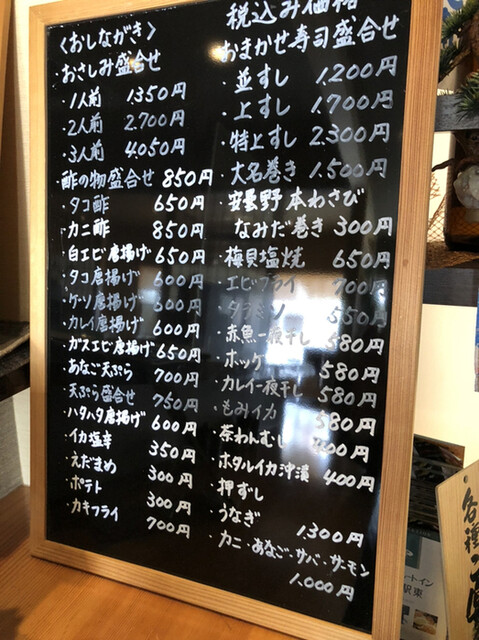 〈おしながき〉
・おさしみ盛合せ
・1人前 1350円
・2人前 2.700円
・3人前 4.050円
酢の物盛合せ 850円
・タコ酢 650円
・カニ酢 850円
・白エビ唐揚げ 650円
・タコ唐揚げ 600円
・ゲソ唐揚げ 500円
・カレイ唐揚げ 600円
・ガスエビ唐揚げ 650円
・あなご天ぷら 700円
・天ぷら盛合せ 750円
・ハタハタ唐揚げ 600円
・イカ塩辛 350円
・えだまめ 300円
・ポテト 300円
・カキフライ 700円
税込み価格
おまかせ寿司盛合せ
・並すし 1.200円
・上すし 1.700円
・特上すし 2.300円
・大名巻き 1.500円
・安曇野本わさび
なみだ巻き 300円
・梅貝塩焼 650円
・エビフライ 700円
・タラミソ 550円
・赤魚一夜干し 580円
・ホッケ 580円
・カレイ一夜干し 580円
・もみイカ 580円
・茶わんむし 400円
・ホタルイカ沖漬 400円
・押ずし
・うなぎ 1.300円
・カニ・あなご・サバ・サーモン
1.000円
各種
駅東